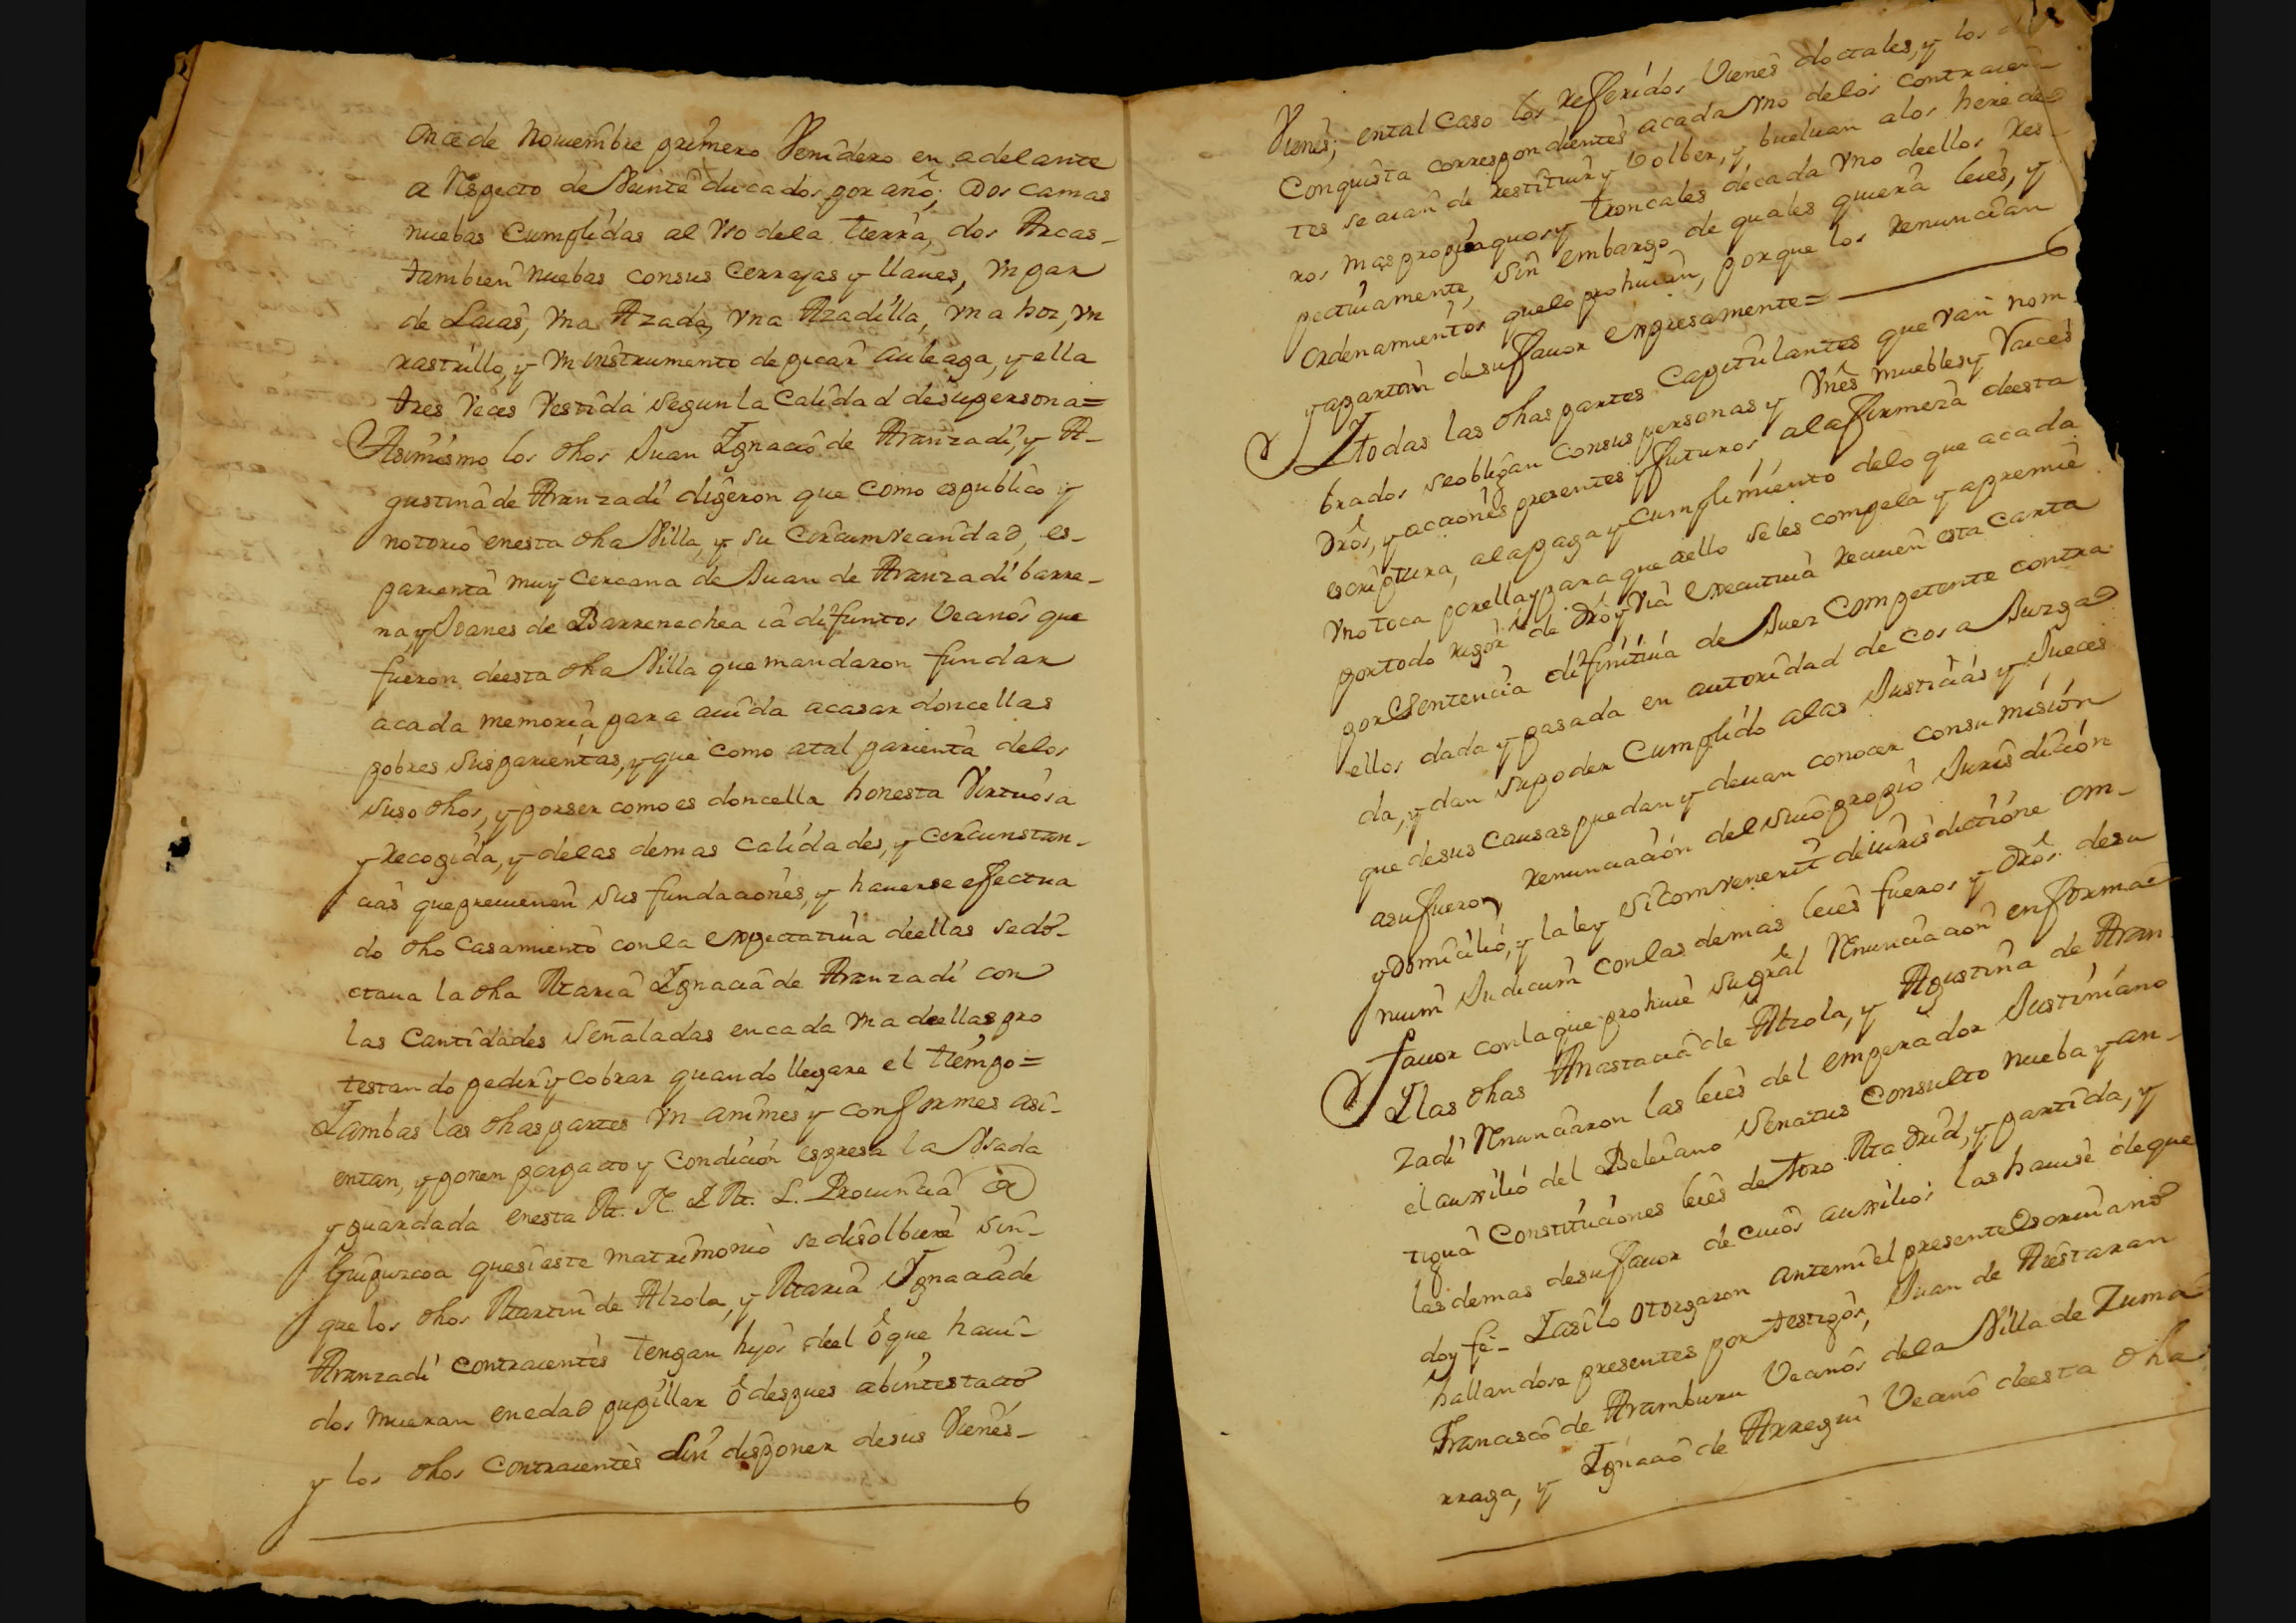 once de Nouiembre primero Venidero en adelante
a Respecto de Veinte ducados por año; Dos camas
nuebas Cumplidas al Vso dela tierra, dos Arcas
tambien nuebas consus Cerrajas y llaues, Vn par
de Laias, Vna Azada, Vna Azadilla, Vna hoz, Vn
rastrillo, y Vn instrumento de picar auleaga, y ella
tres Veces Vestida segun la Calidad desupersona=
Asimismo los dhos Juan Ignacio de Aranzadi, y A-
gustina de Aranzadi digeron que como espublico y
notorio enesta dha Villa, y su Circumvecindad, es-
parienta muy cercana de Juan de Aranzadi barre-
na, y Joanes de Barrenechea ia difuntos Vecinos que
fueron deesta dha Villa que mandaron fundar
acada memoria para aiuda acasar doncellas
pobres sus parientas, y que como atal parienta delos
suso dhos, y porser como es doncella honesta Virtuosa
y Recogida, y delas demas Calidades, y circunstan-
cias que preuienen sus fundaciones, y hauerse efectua
do dho Casamiento con la expectatiua deellas sedo-
ctaua la dha Maria Ignacia de Aranzadi con
las Cantidades señaladas encada Vna deellas pro
testando pedir y cobrar quando llegare el tiempo=
Iambas las dhas partes Vnanimes y conformes asi-
entan, y ponen por pacto y Condicion espresa la Vsada
y guardada enesta M. N. I M. L. Prouincia de
Guipuzcoa quesieste matrimonio se disolbiere sin-
que los dhos Martin de Alzola, y Maria Ignacia de
Aranzadi Contraientes tengan hijos deel ô que haui-
dos mueran enedad pupillar ô despues abintestato
y los dhos Contraientes sin disponer desus Vienes-
Vienes; ental Caso los referidos Vienes doctales, y los de
Conquista correspondientes acada Vno delos contraien-
tes se aian de restituir y bolber, y buelvan alos herede
ros mas propinquos y troncales decada Vno deellos res-
pectiuamente, sin embargo de quales quiera leies, y
Ordenamientos quelo prohiuan, porque los renuncian
y apartan desufauor expresamente=
Itodas las dhas partes Capitulantes que Van nom
brados seobligan consus personas y Vnes muebles y Raices
dros, y acciones presentes y futuros, alafirmeza deesta
escriptura, alapaga y Cumplimiento delo que acada
Vno toca porella y para que aello seles compela y apremie
portodo rigor de dro y Via executiua reciuen esta Carta
por Sentencia difinitiua de Juez Competente contra
ellos dada y pasada en autoridad de Cosa Juzga
da, y dan supoder Cumplido alas Justicias y Jueces
que desus Causas puedan y deuan conocer consumision
asufuero, renunciacion del suio propio Jurisdicion
y domicilio, y la ley sicomvenerit de iurisdictione om-
nium Judicum con las demas leies fueros y dros desu
fauor conlaque prohiue sugral Renunciacion enforma
Ilas dhas Anastacia de Alzola, y Agustina de Aran
zadi Renunciaron las leies del emperador Justiniano
el auxilio del Beleiano Senatus Consulto nueba y an-
tigua Constituciones leies de toro Madrid, y partida, y
las demas desufauor de cuios auxilios las hauise deque
doy fe- Iasilo otorgaron antemi el presente Escriuano
hallandose presentes por testigos, Juan de Aristaran
Francisco de Aramburu Vecinos dela Villa de Zuma
rraga, y Ignacio de Arregui Vecino deesta dha